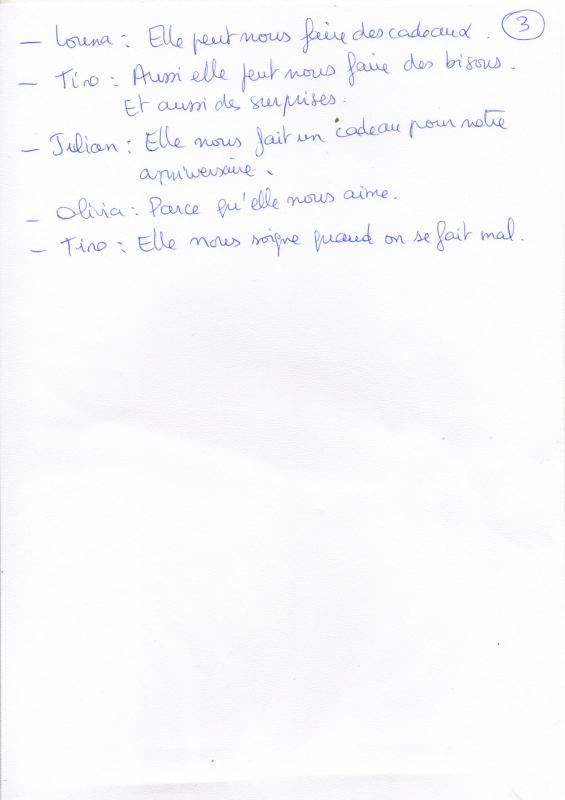 3
— Louna : Elle peut nous faire des cadeaux.
— Tino : Aussi elle peut nous faire des bisous.
Et aussi des surprises.
— Julian : Elle nous fait un cadeau pour notre
anniversaire.
— Olivia : Parce qu'elle nous aime.
— Tino : Elle nous soigne quand on se fait mal.